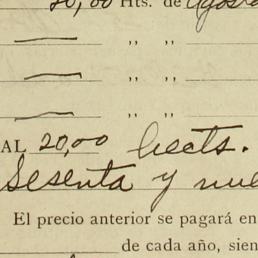 20,00 Hts. de Agosto
— ,, ,,
— ,, ,,
— ,, ,,
AL 20,00 hects.
Sesenta y nue
El precio anterior se pagará en
de cada año, sien